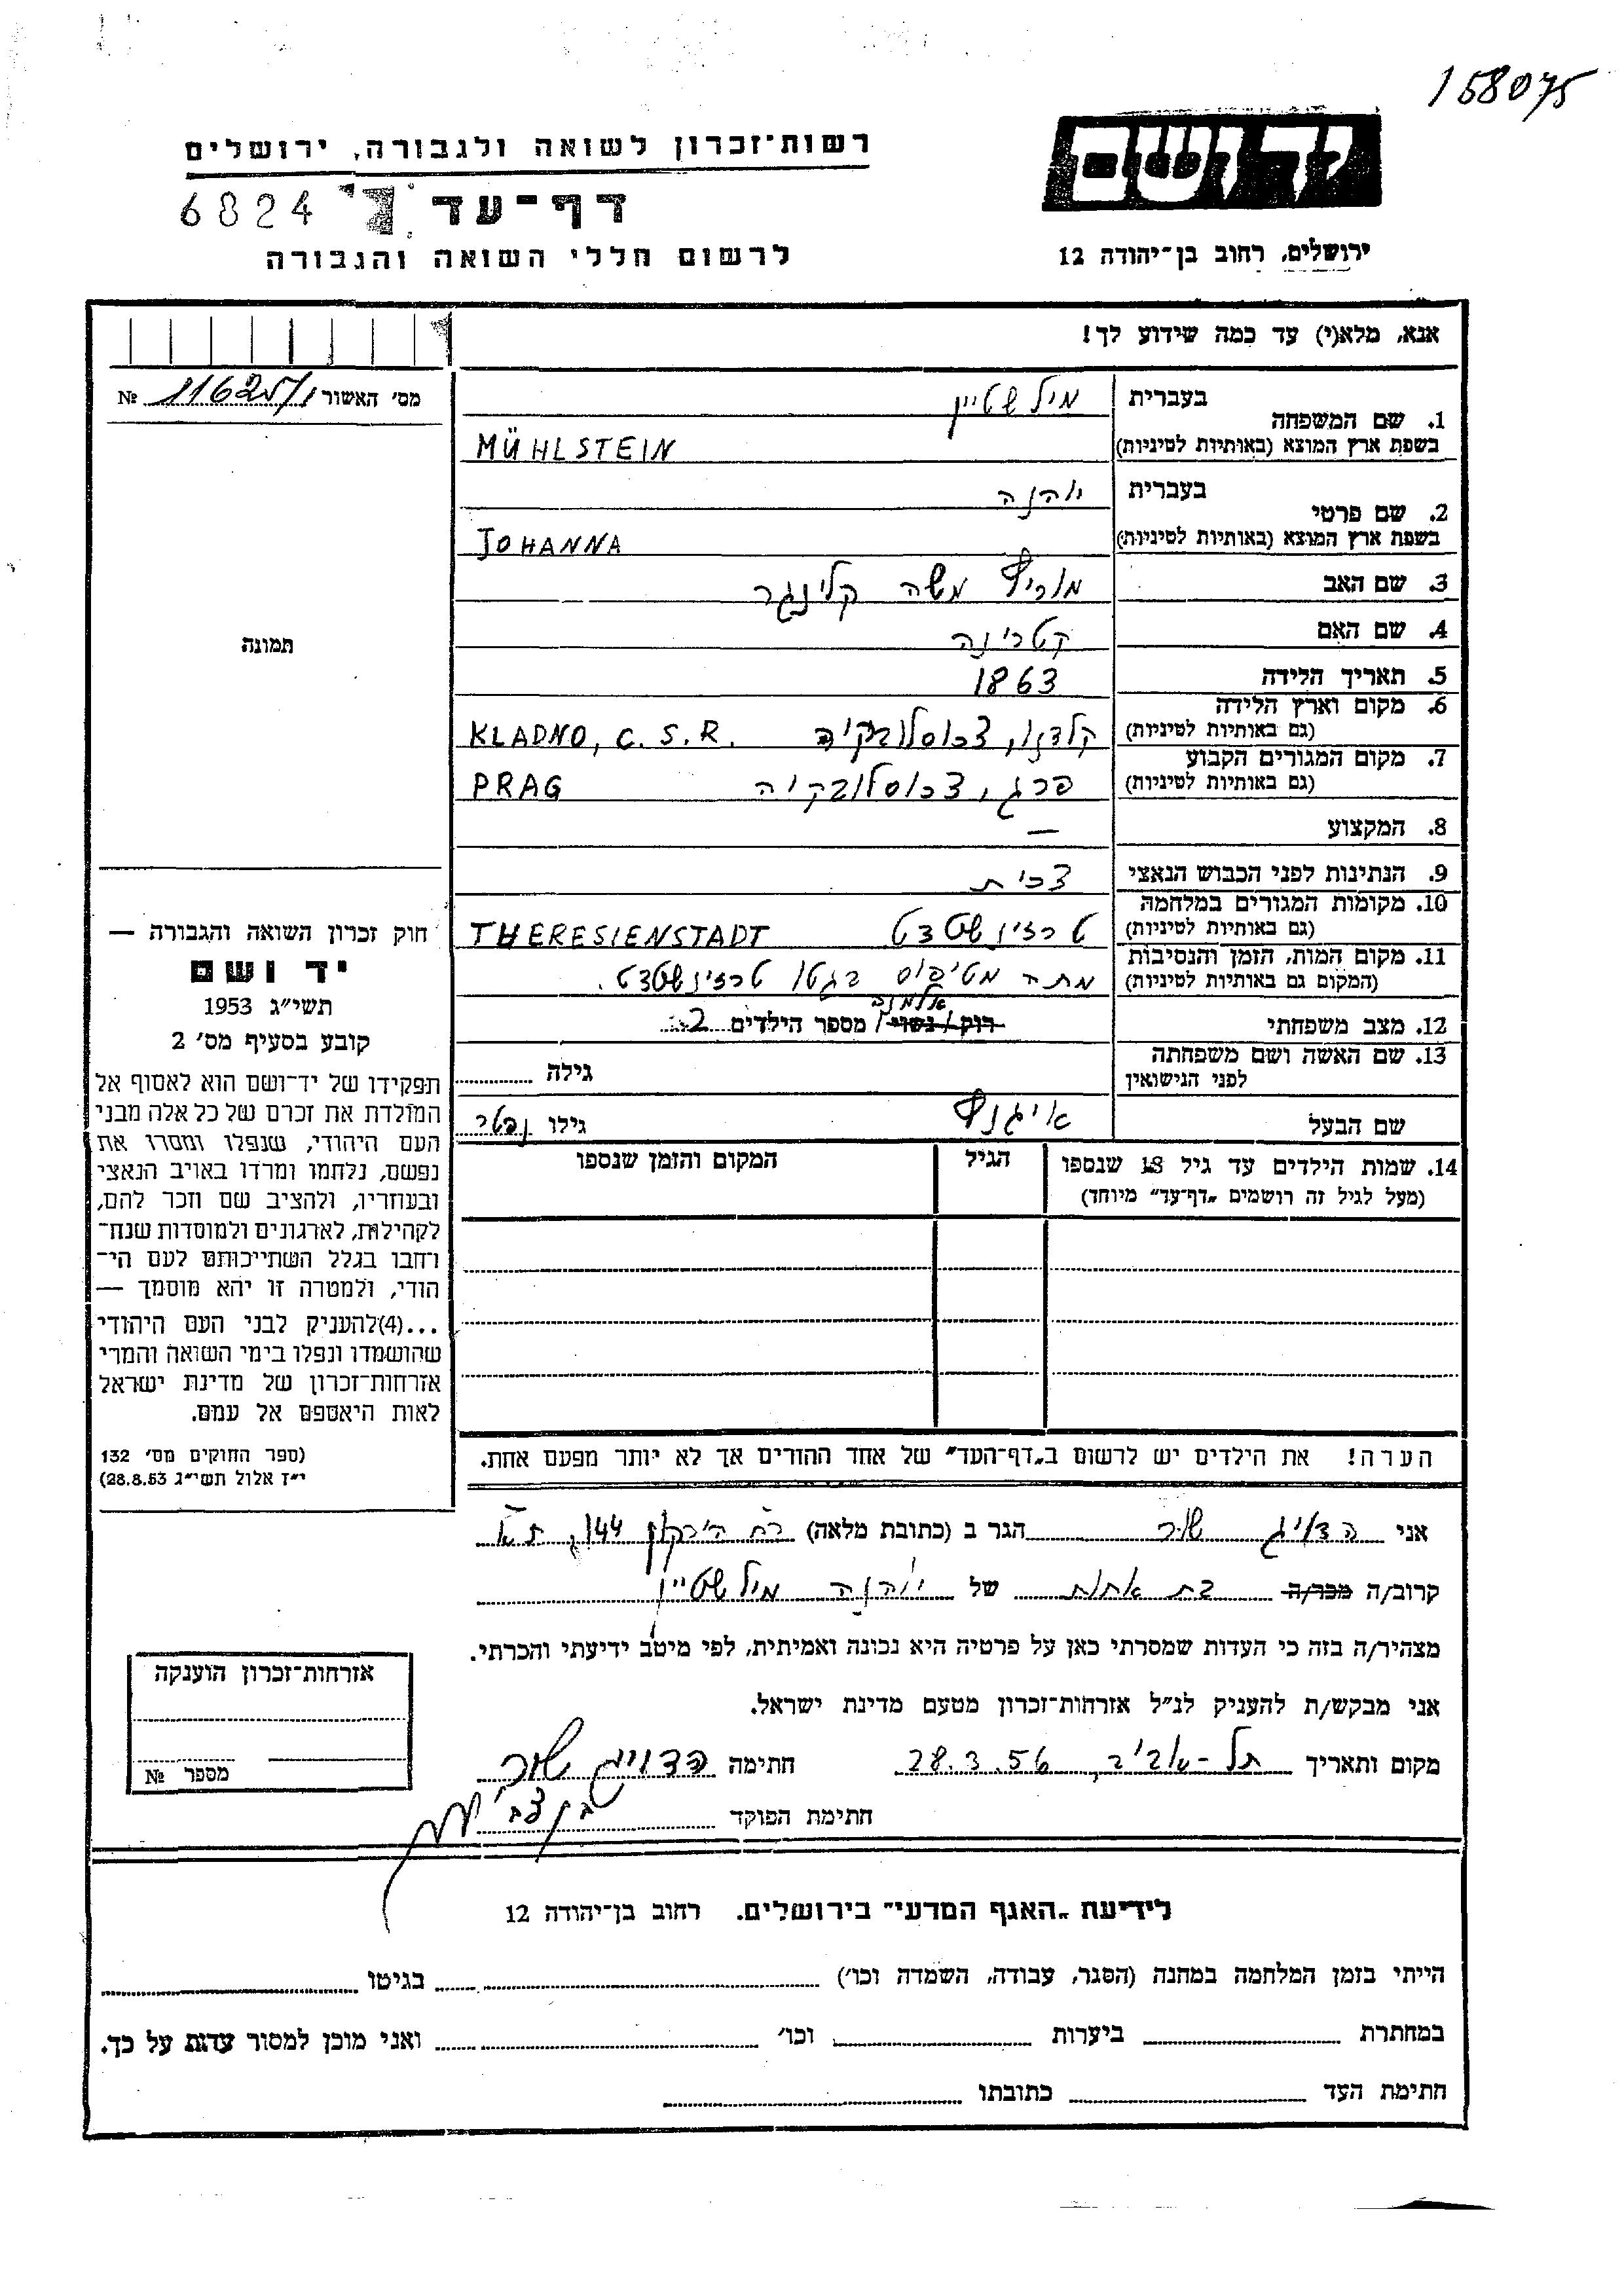 158075
יד ושם
רשות־זכרון לשואה ולגבורה, ירושלים
דף־עד
6824
ירושלים, רחוב בן־יהודה 12
לרשום חללי השואה והגבורה
אנא, מלא(י) עד כמה שידוע לך!
מס' האשור № 11625/1
תמונה
1. שם המשפחה
בעברית מילשטיין
בשפת ארץ המוצא (באותיות לטיניות) MÜHLSTEIN
2. שם פרטי
בעברית יוהנה
בשפת ארץ המוצא (באותיות לטיניות) JOHANNA
3. שם האב מוריץ משה קלינגר
4. שם האם קטרינה
5. תאריך הלידה 1863
6. מקום וארץ הלידה
(גם באותיות לטיניות) קלדנו, צכוסלובקיה KLADNO, C.S.R.
7. מקום המגורים הקבוע
(גם באותיות לטיניות) פרג, צכוסלובקיה PRAG
8. המקצוע —
9. הנתינות לפני הכבוש הנאצי צכית
10. מקומות המגורים במלחמה
(גם באותיות לטיניות) טרזינשטדט THERESIENSTADT
11. מקום המות, הזמן והנסיבות
(המקום גם באותיות לטיניות) מתה מטיפוס בגטו טרזינשטדט.
אלמנה
12. מצב משפחתי רוק / נשוי / מספר הילדים 2
13. שם האשה ושם משפחתה
לפני הנישואין גילה
שם הבעל איגנץ גילו נפטר
14. שמות הילדים עד גיל 18 שנספו הגיל המקום והזמן שנספו
(מעל לגיל זה רושמים „דף־עד" מיוחד)
חוק זכרון השואה והגבורה —
יד ושם
תשי"ג 1953
קובע בסעיף מס' 2
תפקידו של יד־ושם הוא לאסוף אל
המולדת את זכרם של כל אלה מבני
העם היהודי, שנפלו ומסרו את
נפשם, נלחמו ומרדו באויב הנאצי
ובעוזריו, ולהציב שם וזכר להם,
לקהילות, לארגונים ולמוסדות שנח־
רבו בגלל השתייכותם לעם הי־
הודי, ולמטרה זו יהא מוסמך —
...(4)להעניק לבני העם היהודי
שהושמדו ונפלו בימי השואה והמרי
אזרחות־זכרון של מדינת ישראל
לאות היאספם אל עמם.
(ספר החוקים מס' 132
י"ז אלול תשי"ג 28.8.53)
הערה! את הילדים יש לרשום ב„דף־העד" של אחד ההורים אך לא יותר מפעם אחת.
אני הדויג שור הגר ב (כתובת מלאה) רח הירקון 144, ת״א
קרוב/ה מכר/ה בת אחות של יוהנה מילשטיין
מצהיר/ה בזה כי העדות שמסרתי כאן על פרטיה היא נכונה ואמיתית, לפי מיטב ידיעתי והכרתי.
אני מבקש/ת להעניק לנ"ל אזרחות־זכרון מטעם מדינת ישראל.
מקום ותאריך תל-אביב, 28.3.56 חתימה הדויג שור
חתימת הפוקד
אזרחות־זכרון הוענקה
מספר №
לידיעת „האגף המדעי" בירושלים. רחוב בן־יהודה 12
הייתי בזמן המלחמה במחנה (הסגר, עבודה, השמדה וכו') בגיטו
במחתרת ביערות וכו' ואני מוכן למסור עדות על כך.
חתימת העד כתובתו